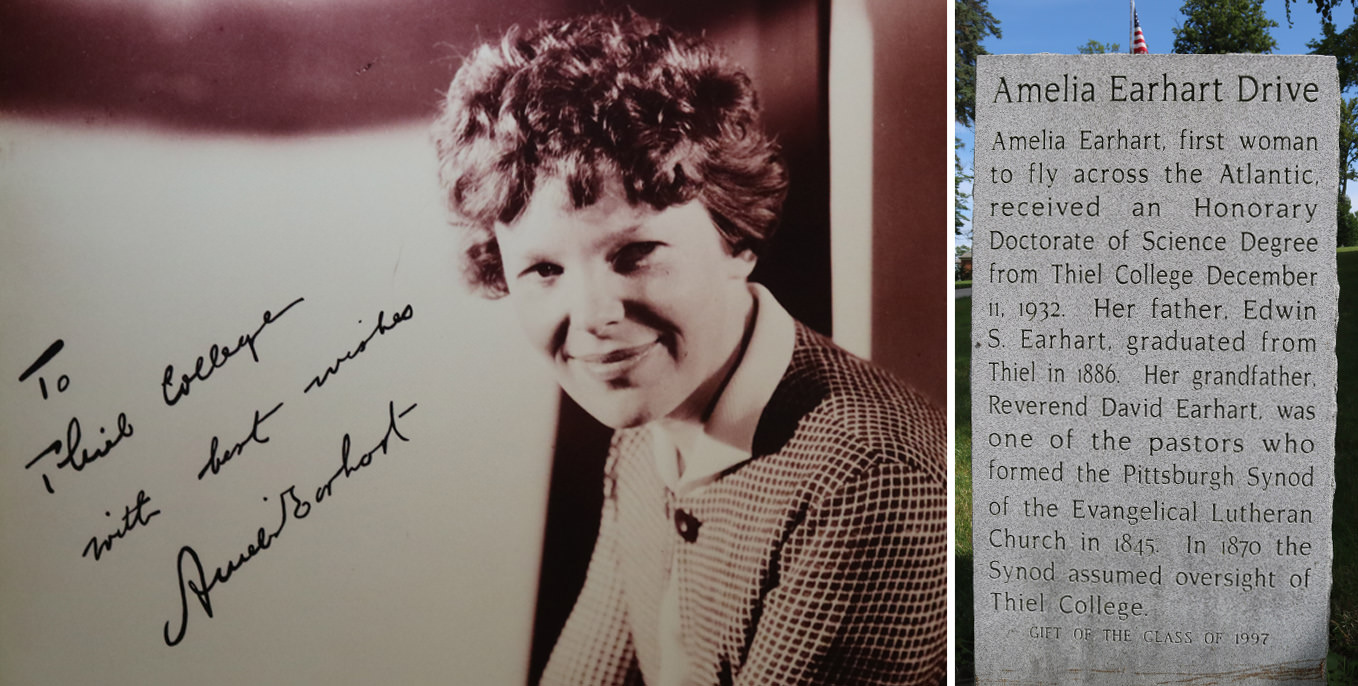 To
Thiel College
with best wishes
Amelia Earhart
Amelia Earhart Drive
Amelia Earhart, first woman
to fly across the Atlantic,
received an Honorary
Doctorate of Science Degree
from Thiel College December
11, 1932. Her father, Edwin
S. Earhart, graduated from
Thiel in 1886. Her grandfather,
Reverend David Earhart, was
one of the pastors who
formed the Pittsburgh Synod
of the Evangelical Lutheran
Church in 1845. In 1870 the
Synod assumed oversight of
Thiel College.
GIFT OF THE CLASS OF 1997